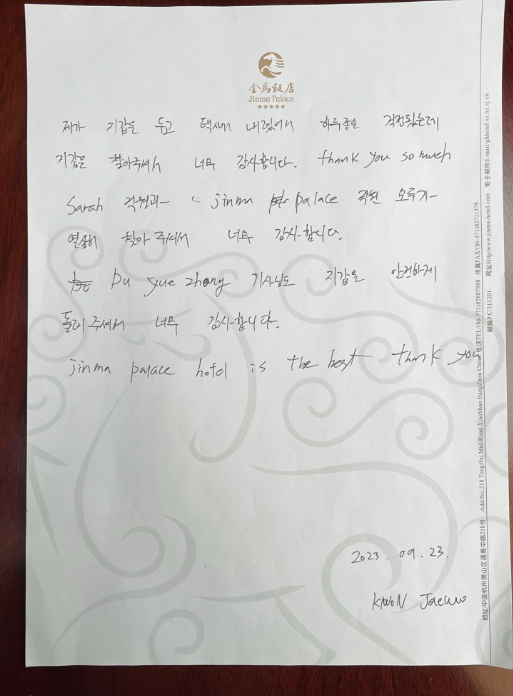 金馬飯店
Jinma Palace
★★★★★
제가 지갑을 두고 택시에 내렸어서 하루종일 걱정됐는데
지갑을 찾아주셔서 너무 감사합니다. thank you so much
Sarah 직원과 jinma palace 직원 모두가
열심히 찾아 주셔서 너무 감사합니다.
Du yue zhong 기사님도 지갑을 안전하게
돌려 주셔서 너무 감사합니다.
jinma palace hotel is the best thank you
2023. 09. 23.
KWON Jaewoo